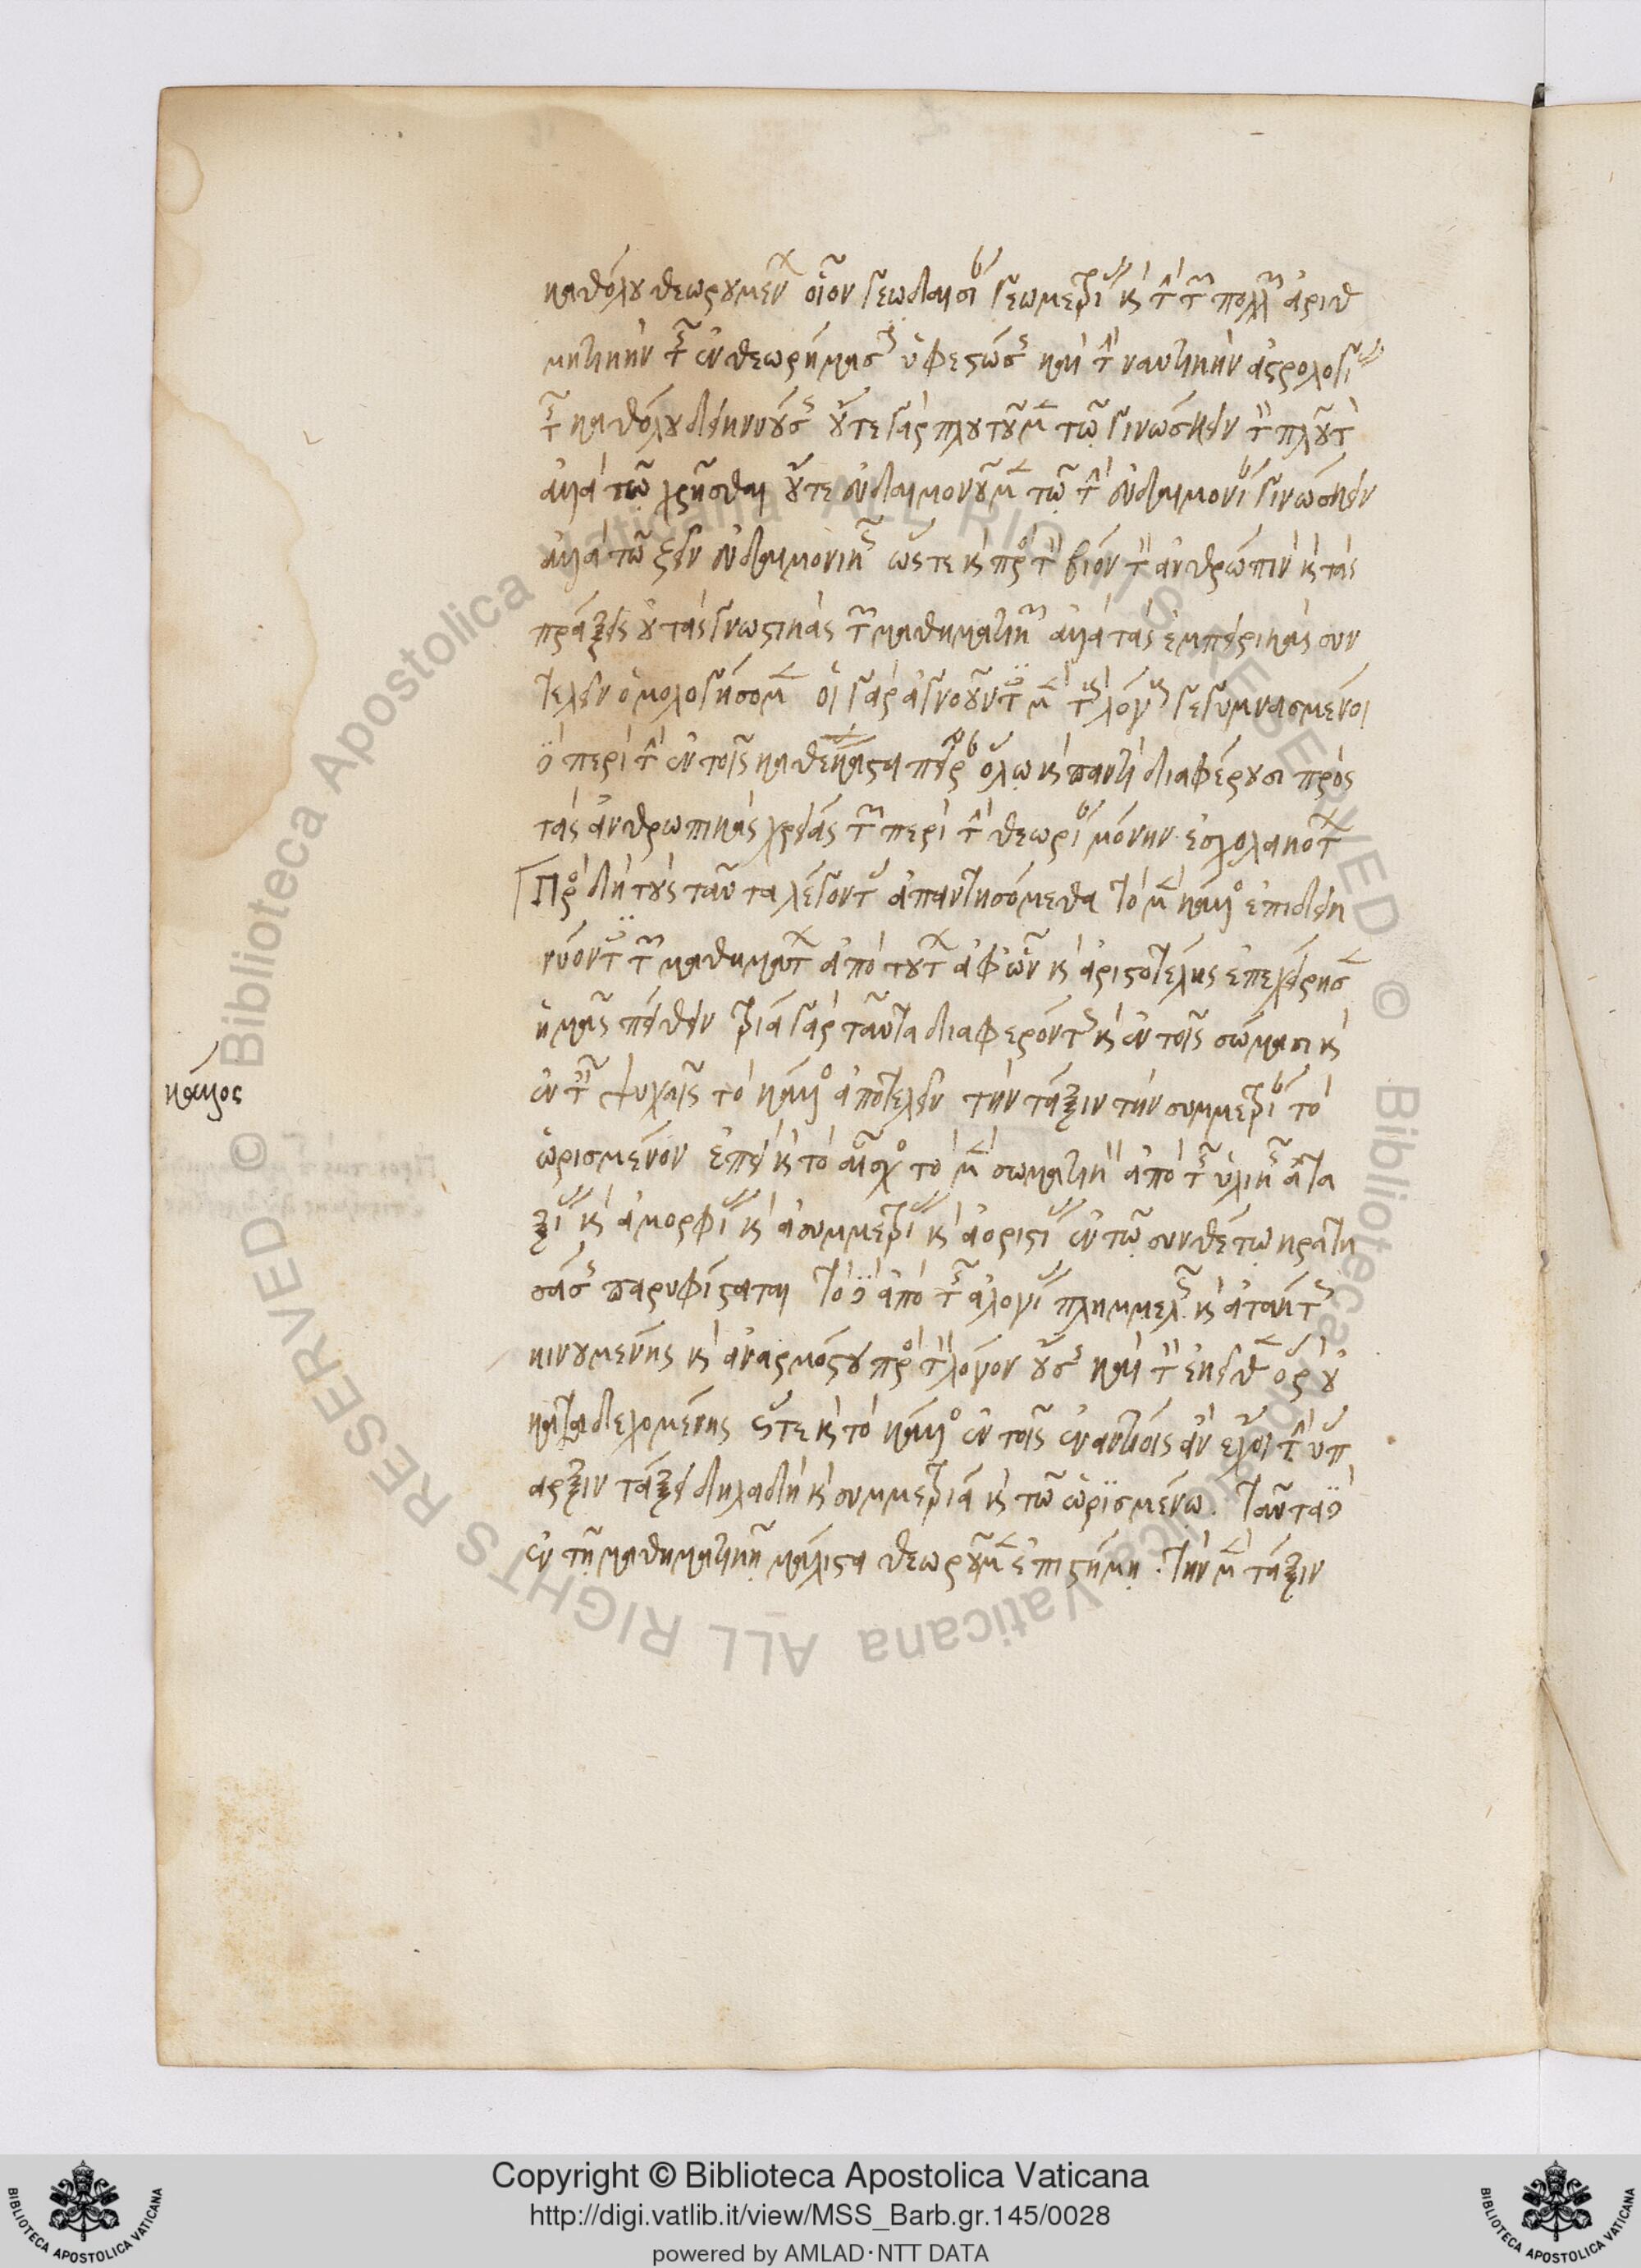 καθόλου θεωρουμένων οἷον γεωδαισίαν γεωμετρίας καὶ τὴν τῶν πολλῶν ἀριθ
μητικὴν τῆς ἐν θεωρήμασιν ὑφεστώσης καὶ τὴν ναυτικὴν ἀστρολογίας
τῆς καθόλου δεικνυούσης οὔτε γὰρ πλουτοῦμεν τῷ γινώσκειν τὸν πλοῦτον
ἀλλὰ τῷ χρῆσθαι οὔτε εὐδαιμονοῦμεν τῷ τὴν εὐδαιμονίαν γινώσκειν
ἀλλὰ τῷ ζεῖν εὐδαιμονικῶς ὥστε καὶ πρὸς τὸν βίον τὸν ἀνθρώπινον καὶ τὰς
πράξεις οὐ τὰς γνωστικὰς τῶν μαθηματικῶν ἀλλὰ τὰς ἐμπειρικὰς συν
τελεῖν ὁμολογήσομεν οἱ γὰρ ἀγνοοῦντες μὲν τοὺς λόγους γεγυμνασμένοι
δὲ περὶ τὴν ἐν τοῖς καθέκαστα πεῖραν ὅλῳ καὶ παντὶ διαφέρουσι πρὸς
τὰς ἀνθρωπικὰς χρείας τῶν περὶ τὴν θεωρίαν μόνην ἐσχολακότων
Πρὸς δὴ τοὺς ταῦτα λέγοντας ἀπαντησόμεθα τὸ μὲν κάλλος ἐπιδεικ
νύοντες τῶν μαθημάτων ἀπὸ τούτων ἀφ' ὧν καὶ ἀριστοτέλης ἐπεχείρησεν
ἡμᾶς πείθειν τρία γὰρ ταῦτα διαφερόντως καὶ ἐν τοῖς σώμασι καὶ
ἐν ταῖς ψυχαῖς τὸ κάλλος ἀποτελεῖν τὴν τάξιν τὴν συμμετρίαν τὸ
κάλλος
ὡρισμένον ἐπεὶ καὶ τὸ αἶσχος τὸ μὲν σωματικὸν ἀπὸ τῆς ὑλικῆς ἀτα
ξίας καὶ ἀμορφίας καὶ ἀσυμμετρίας καὶ ἀοριστίας ἐν τῷ συνθέτῳ κρατη
σάσης παρυφίσταται τὸ δὲ ἀπὸ τῆς ἀλογίας πλημμελῶς καὶ ἀτάκτως
κινουμένης καὶ ἀναρμόστου πρὸς τὸν λόγον οὔσης καὶ τὸν ἐκεῖθεν ὅρον οὐ
καταδεχομένης ὥστε καὶ τὸ κάλλος ἐν τοῖς ἐναντίοις ἂν ἔχοι τὴν ὕπ
αρξιν τάξει δηλαδὴ καὶ συμμετρίᾳ καὶ τῷ ὡρϊσμένω. ταῦτα δὲ
ἐν τῇ μαθηματικῇ μάλιστα θεωροῦμεν ἐπιστήμῃ. τὴν μὲν τάξιν
Copyright © Biblioteca Apostolica Vaticana
http://digi.vatlib.it/view/MSS_Barb.gr.145/0028
powered by AMLAD·NTT DATA